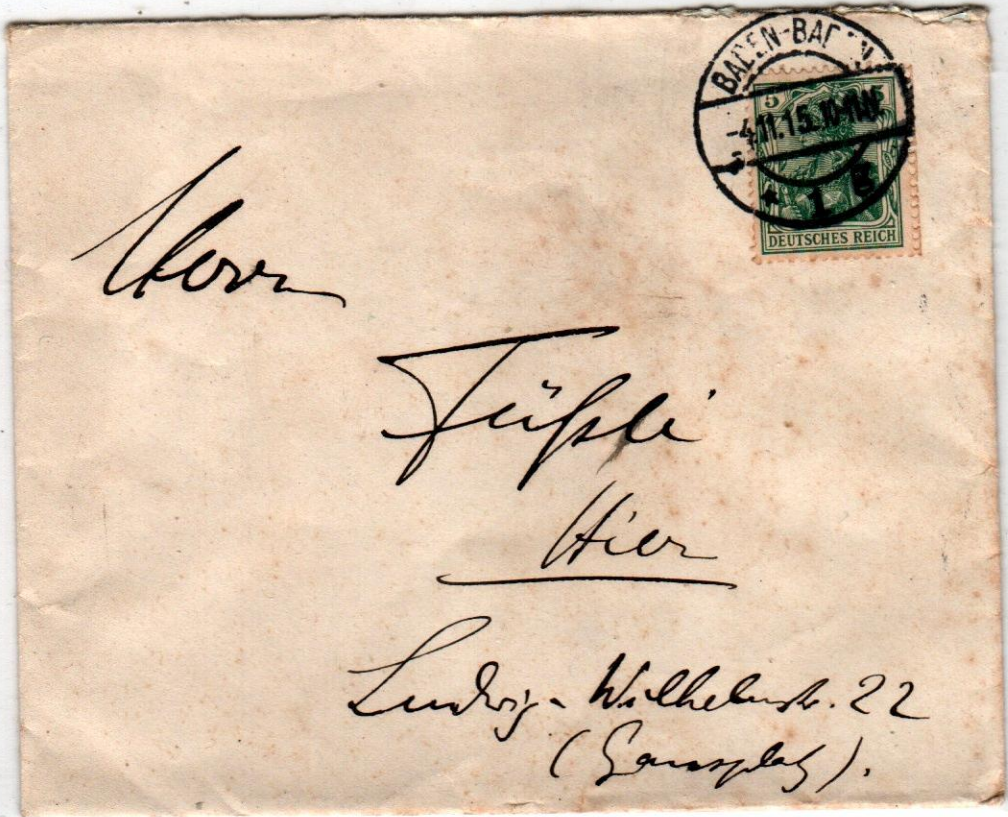 BADEN-BADEN
5 5
-4.11.15. 10-11V.
* 1 g
DEUTSCHES REICH
Herrn
Füßli
Hier
Ludwig-Wilhelmstr. 22